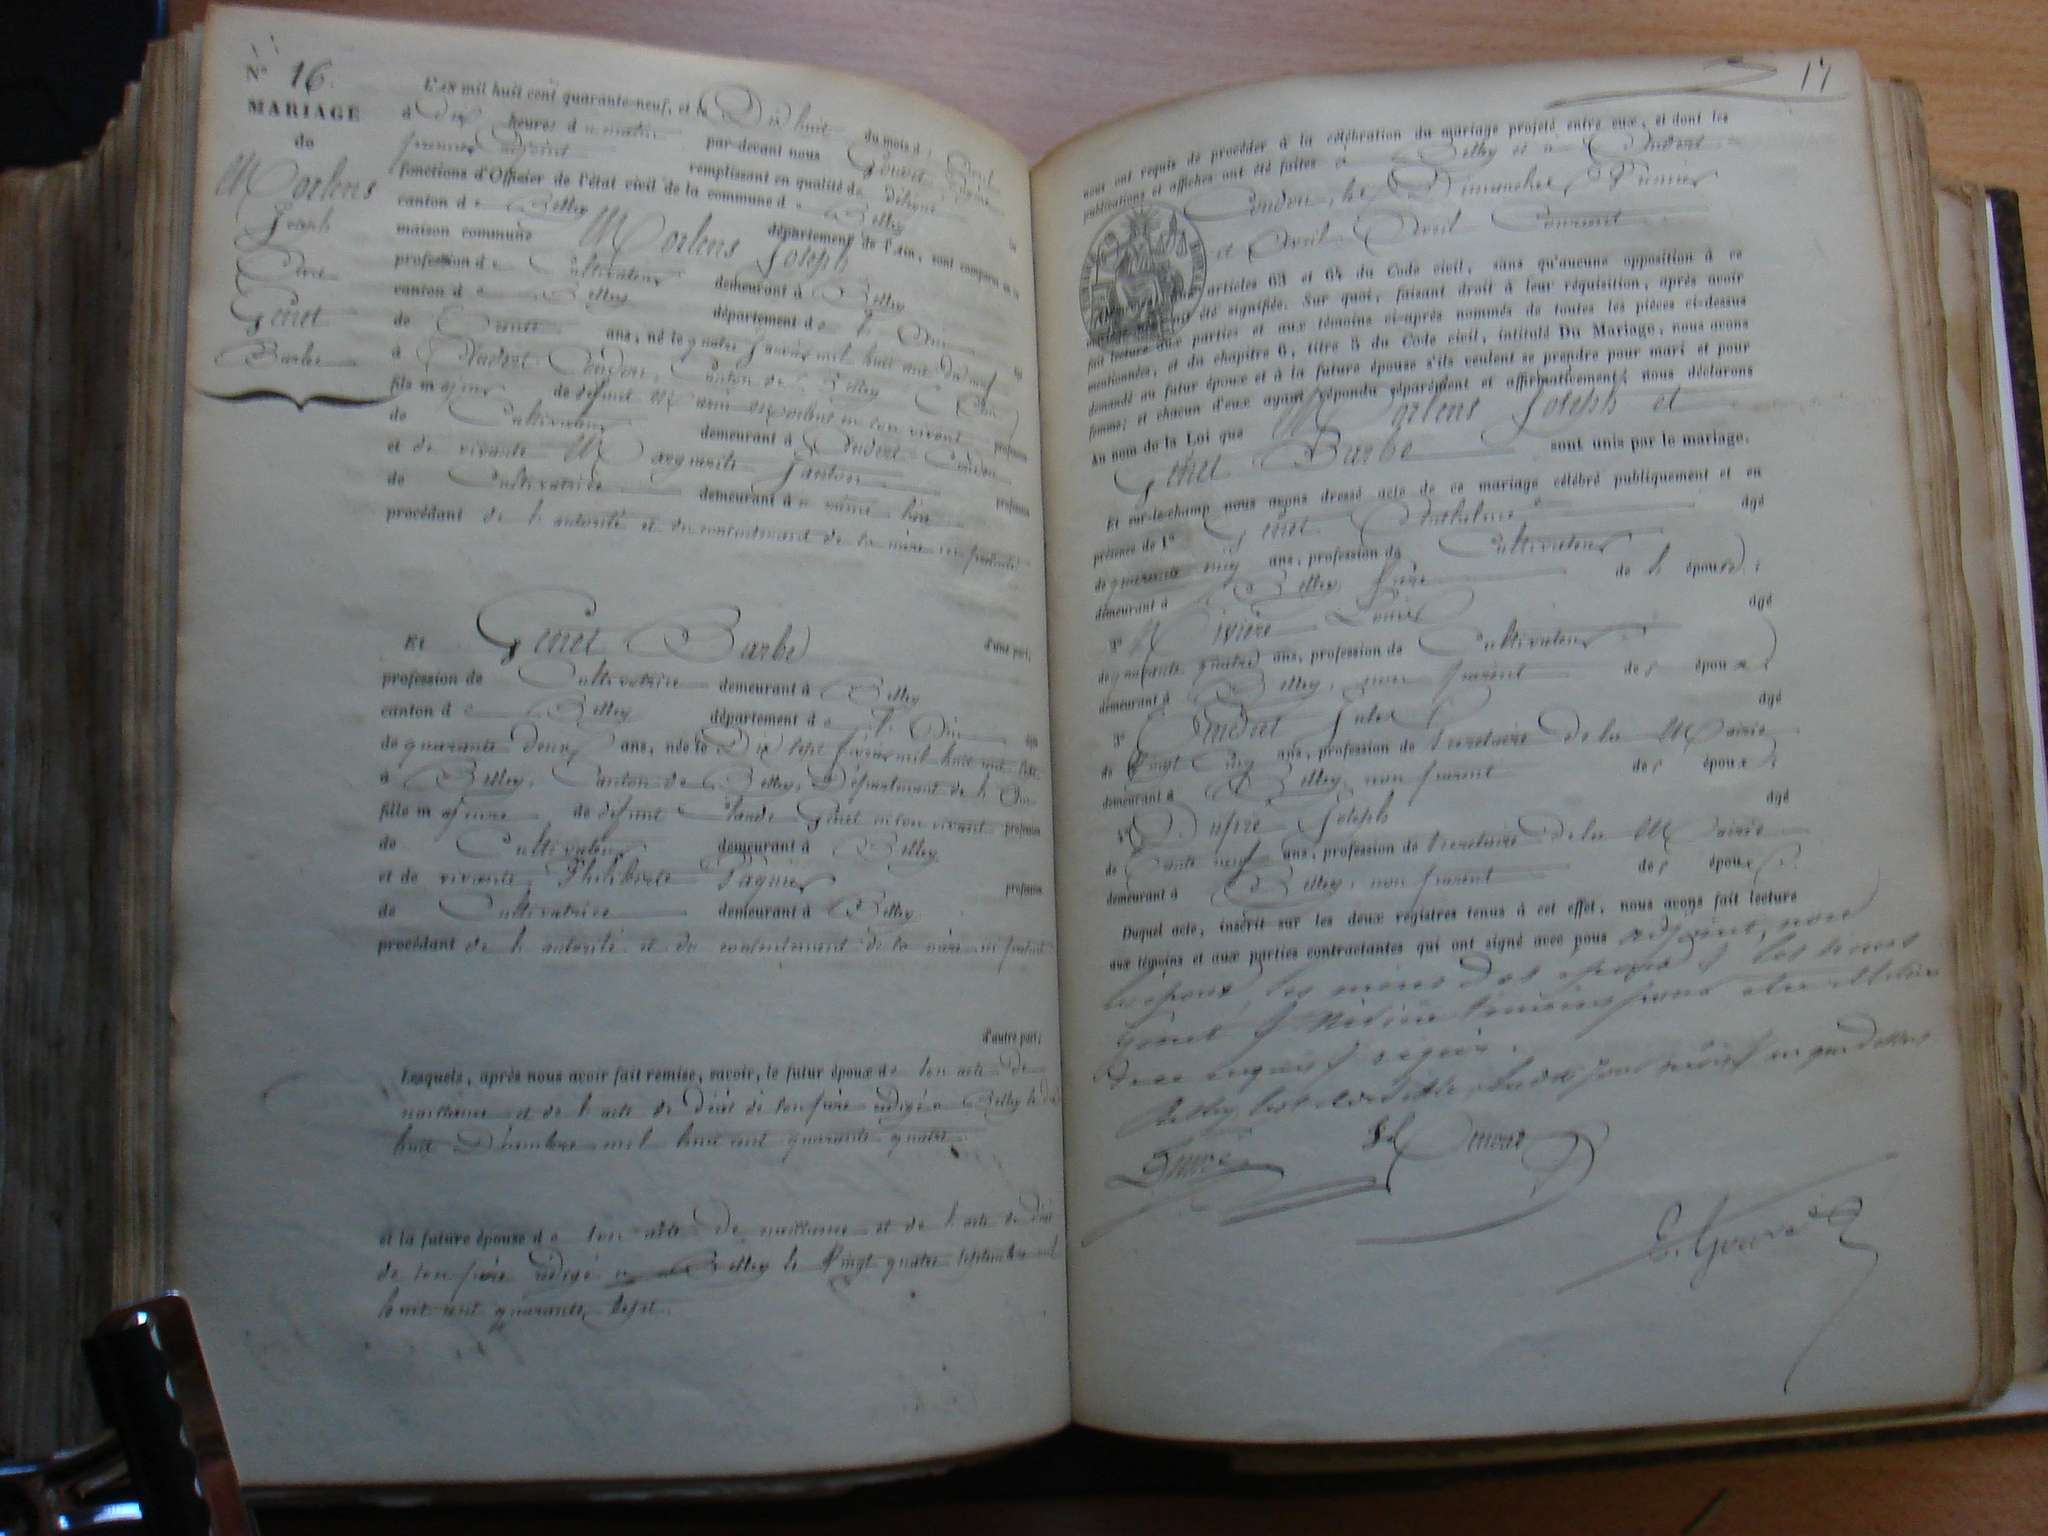 N° 16.
MARIAGE
de
Morlens
Joseph
Avec
Genet
Barbe
L'an mil huit cent quarante-neuf, et le Dix huit du mois d'Avril
à Dix heures du matin par-devant nous
premier adjoint remplissant en qualité de délégué
fonctions d'Officier de l'état civil de la commune de Belley
canton de Belley département de l'Ain, sont comparus en la
maison commune Morlens Joseph
profession de Cultivateur demeurant à Belley
canton de Belley département de l'Ain
de Trente ans, né le quatre mil huit cent dix neuf
à Andert-Condon, Canton de Belley (Ain)
fils majeur de défunt Morlens en son vivant profession
de Cultivateur demeurant à Andert-Condon
et de vivante Marguerite profession
de Cultivatrice demeurant au même lieu
procédant de l'autorité et du consentement de la mère ici présente
d'une part;
Et Genet Barbe
profession de Cultivatrice demeurant à Belley
canton de Belley département de l'Ain
de quarante deux ans, née le Dix sept mil huit cent sept
à Belley, Canton de Belley, Département de l'Ain
fille majeure de défunt Claude Genet en son vivant profession
de Cultivateur demeurant à Belley
et de vivante Philiberte Pagnier profession
de Cultivatrice demeurant à Belley
procédant de l'autorité et du consentement de la mère ici présente
d'autre part;
Lesquels, après nous avoir fait remise, savoir, le futur époux de son acte de
naissance et de l'acte de décès de son père rédigé à Belley le dix
huit Décembre mil huit cent quarante quatre.
et la future épouse de son acte de naissance et de l'acte de décès
de son père rédigé à Belley le Vingt quatre septembre mil
huit cent quarante sept.
17
nous ont requis de procéder à la célébration du mariage projeté entre eux, et dont les
publications et affiches ont été faites à Belley et à Andert
Condon, les Dimanches Premier
et Avril Courant
articles 63 et 64 du Code civil, sans qu'aucune opposition à ce
été signifiée. Sur quoi, faisant droit à leur réquisition, après avoir
fait lecture aux parties et aux témoins ci-après nommés de toutes les pièces ci-dessus
mentionnées, et du chapitre 6, titre 5 du Code civil, intitulé Du Mariage, nous avons
demandé au futur époux et à la future épouse s'ils veulent se prendre pour mari et pour
femme; et chacun d'eux ayant répondu séparément et affirmativement, nous déclarons
Au nom de la Loi que Morlens Joseph et
Genet Barbe sont unis par le mariage.
Et sur-le-champ nous avons dressé acte de ce mariage célébré publiquement et en
présence de 1° Genet Anthelme âgé
de quarante cinq ans, profession de Cultivateur
demeurant à Belley frère de l'épouse;
2° Nivière Louis âgé
de quarante quatre ans, profession de Cultivateur
demeurant à Belley, non parent des époux;
3° Andret Jules âgé
de Vingt Cinq ans, profession de secretaire de la Mairie
demeurant à Belley, non parent des époux;
4° Dupré Joseph âgé
de Trente neuf ans, profession de secretaire de la Mairie
demeurant à Belley, non parent des époux.
Duquel acte, insérit sur les deux registres tenus à cet effet, nous avons fait lecture
aux témoins et aux parties contractantes qui ont signé avec nous adjoint, non
les époux, les mères des époux et les sieurs
Genet et Nivière témoins pour être illettrés
de ce enquis et requis.
Dupré